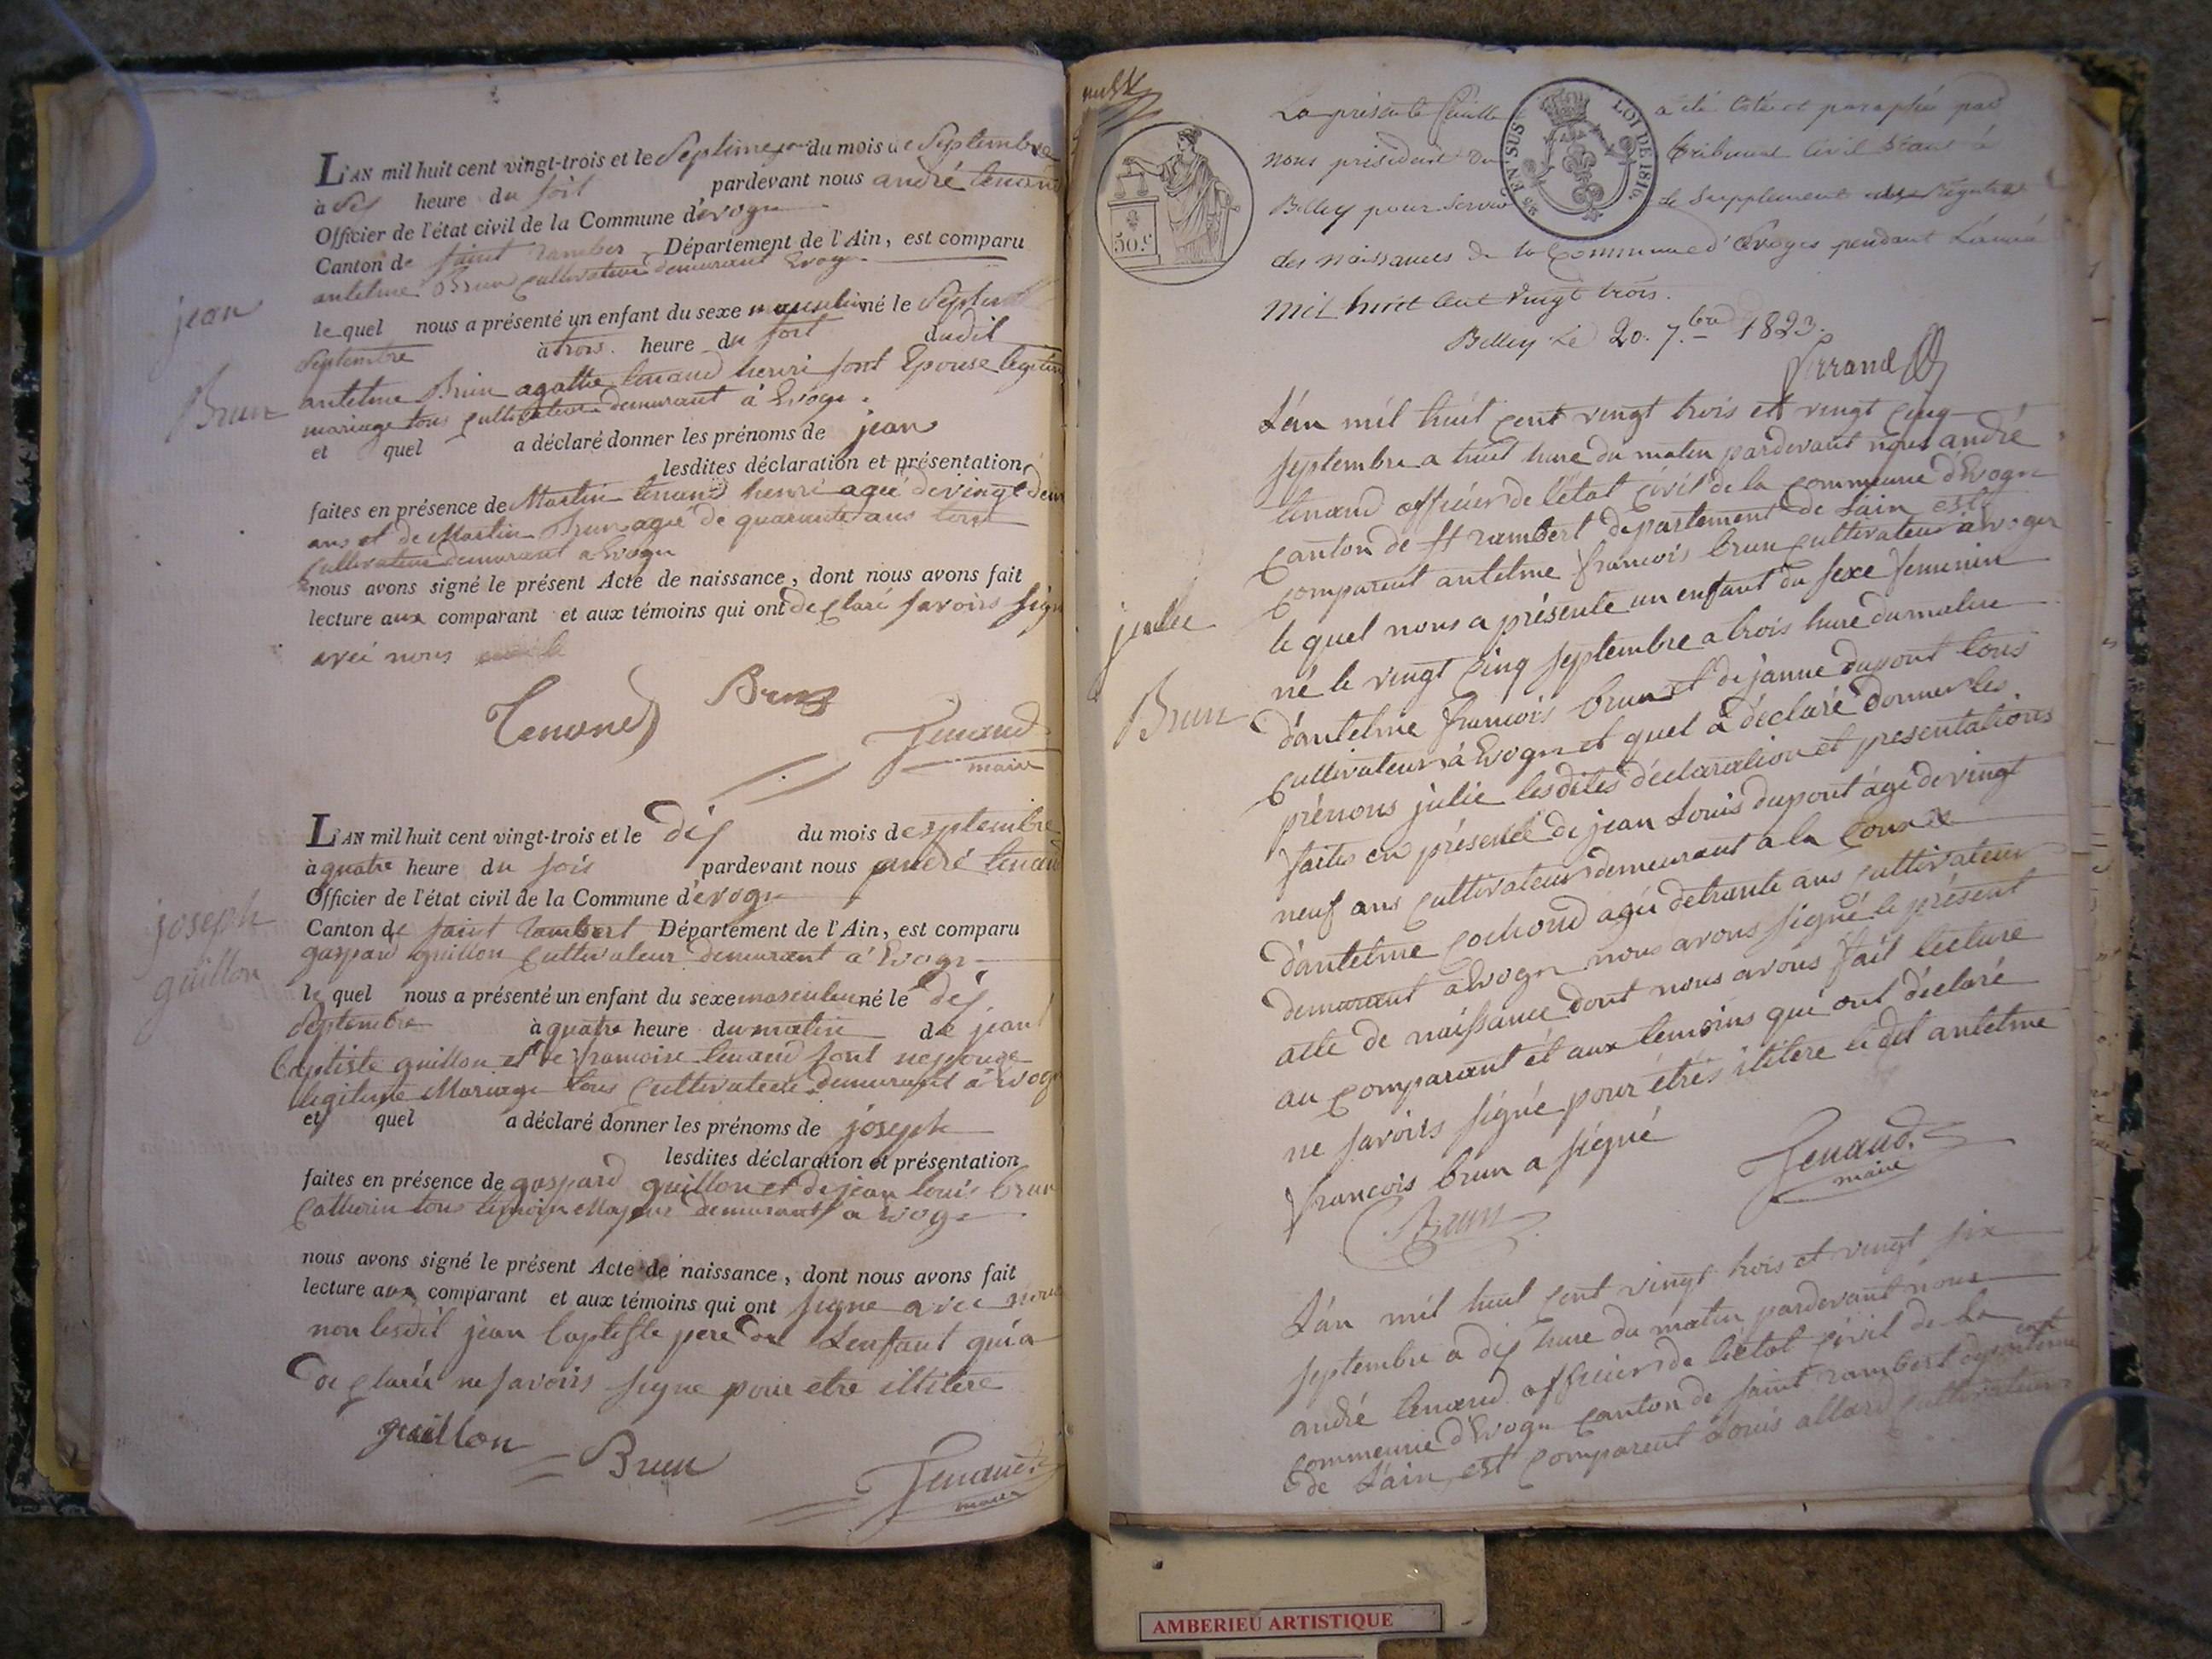 L'AN mil huit cent vingt-trois et le Septime jour du mois de Septembre
à dix heure du soir pardevant nous andré tenand
Officier de l'état civil de la Commune d'évoge
Canton de saint rambert Département de l'Ain, est comparu
antelme Brun cultivateur demurant Evoge
jean
Brun
le quel nous a présenté un enfant du sexe masculin né le Septime
Septembre à trois heure du soir dudit
antelme Brun agathe tenand henri sont Epouse legitime
mariage tous cultivateur demurant à Evoge.
et quel a déclaré donner les prénoms de jean
lesdites déclaration et présentation
faites en présence de Martin tenand henri agée de vingt deux
ans et de Martin Brun agée de quarante ans tous
cultivateur demurant a Evoge
nous avons signé le présent Acte de naissance, dont nous avons fait
lecture aux comparant et aux témoins qui ont declaré savoirs signé
avec nous
Tenand Brun
Tenand
maire
L'AN mil huit cent vingt-trois et le dix du mois de septembre
à quatre heure du soir pardevant nous andré tenand
Officier de l'état civil de la Commune d'évoge
joseph
guillon
Canton de saint rambert Département de l'Ain, est comparu
gaspard guillon cultivateur demurant à Evoge
le quel nous a présenté un enfant du sexe masculin né le dix
septembre à quatre heure du matin de jean
baptiste guillon et de francoise tenand sont
legitime Mariage tous cultivateur demurant à Evoge
et quel a déclaré donner les prénoms de joseph
lesdites déclaration et présentation
faites en présence de gaspard guillon et de jean louis brun
Catherin tous temoin Majeur demurant a Evoge
nous avons signé le présent Acte de naissance, dont nous avons fait
lecture aux comparant et aux témoins qui ont signe avec nous
non lesdit jean baptiste pere de Lenfant qui a
declarér ne savoirs signe pour etre illitere
guillon Brun
Tenand
maire
La présente feuille a été cotée et paraphée par
nous président du tribunal civil séant à
Belley pour servir de supplement aux Régistres
des naissances de la Commune d'Evoges pendant L'année
mil huit cent vingt trois.
Belley Le 20. 7.bre 1823.
50.c
EN SUS
LOI DE 1816
L'án mil huit cent vingt trois et vingt cinq
septembre a huit hure du matin pardevant nous andré
tenand officier de létat civil de la commune d'Evoge
canton de St rambert departement de Láin est
comparut antelme francois brun cultivateur a Evoges
le quel nous a présente un enfant du sexe femenin
né le vingt cinq septembre a trois hure du matin
julie
Brun
d'antelme francois brun et de janne dupont tous
cultivateur à Evoge et quel à déclaré donner les
prénons julie lesdites déclaration et presentations
faites en présence de jean Louis dupont ágé de vingt
neuf ans cultivateur demeurant a la
d'antelme cochond agée de trante ans cultivateur
demurant a Evoge nous avons signé le présent
acte de naissance dont nous avons fait lecture
au comparant et aux temoins qui ont déclaré
ne savoirs signé pour étrés ilitere le dit antelme
francois brun a signé
Brun
Tenand.
maire
L'án mil huit cent vingt trois et vingt six
septembre a dix hure du matin pardevant nous
andré tenand officier de létat civil de la
commune d'Evoge canton de saint rambert departement
de Láin est comparut Louis allard cultivateur
AMBERIEU ARTISTIQUE